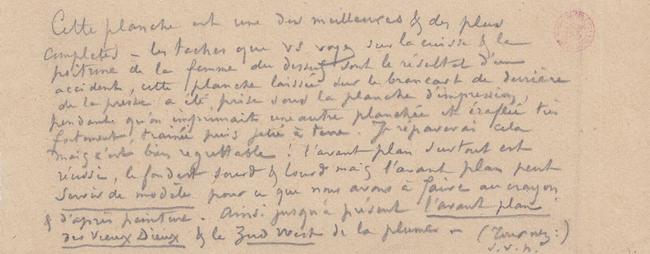 Cette planche est une des meilleures & des plus
completes – les taches que vs voyez sur la cuisse & la
poitrine de la femme du dessus sont le résultat d'un
accident, cette planche laissée sur le brancart de derrière
de la presse a été prise sous la planche d'impression
pendant qu'on imprimait une autre planche & éraflée très
fortement, trainée puis jetée à terre. Je reparerai cela
mais c'est bien regrettable ! l'avant plan surtout est
réussi, le fond est sourd & lourd mais l'avant plan peut
servir de modèle pour ce que nous avons à faire au crayon
& d'après peinture. Ainsi jusqu'à présent l'avant plan
des Vieux Dieux & le Zud West de la plume – (Tournez:)
s.v.p.